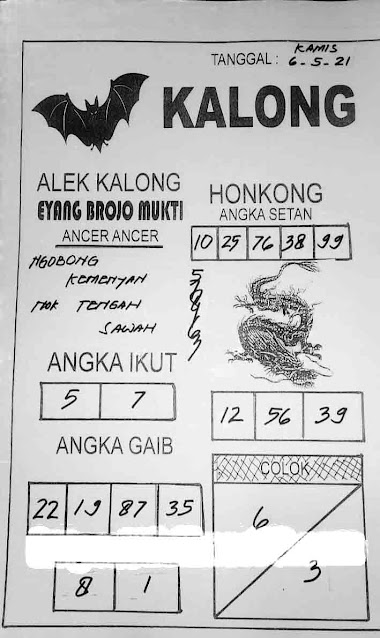 TANGGAL : KAMIS
6-5-21
KALONG
ALEK KALONG
EYANG BROJO MUKTI
ANCER ANCER
NGOBONG
KEMENYAN
NOK TENGAH
SAWAH
HONKONG
ANGKA SETAN
10 25 76 38 99
ANGKA IKUT
5 7
12 56 39
ANGKA GAIB
22 19 87 35
8 1
COLOK
6
3